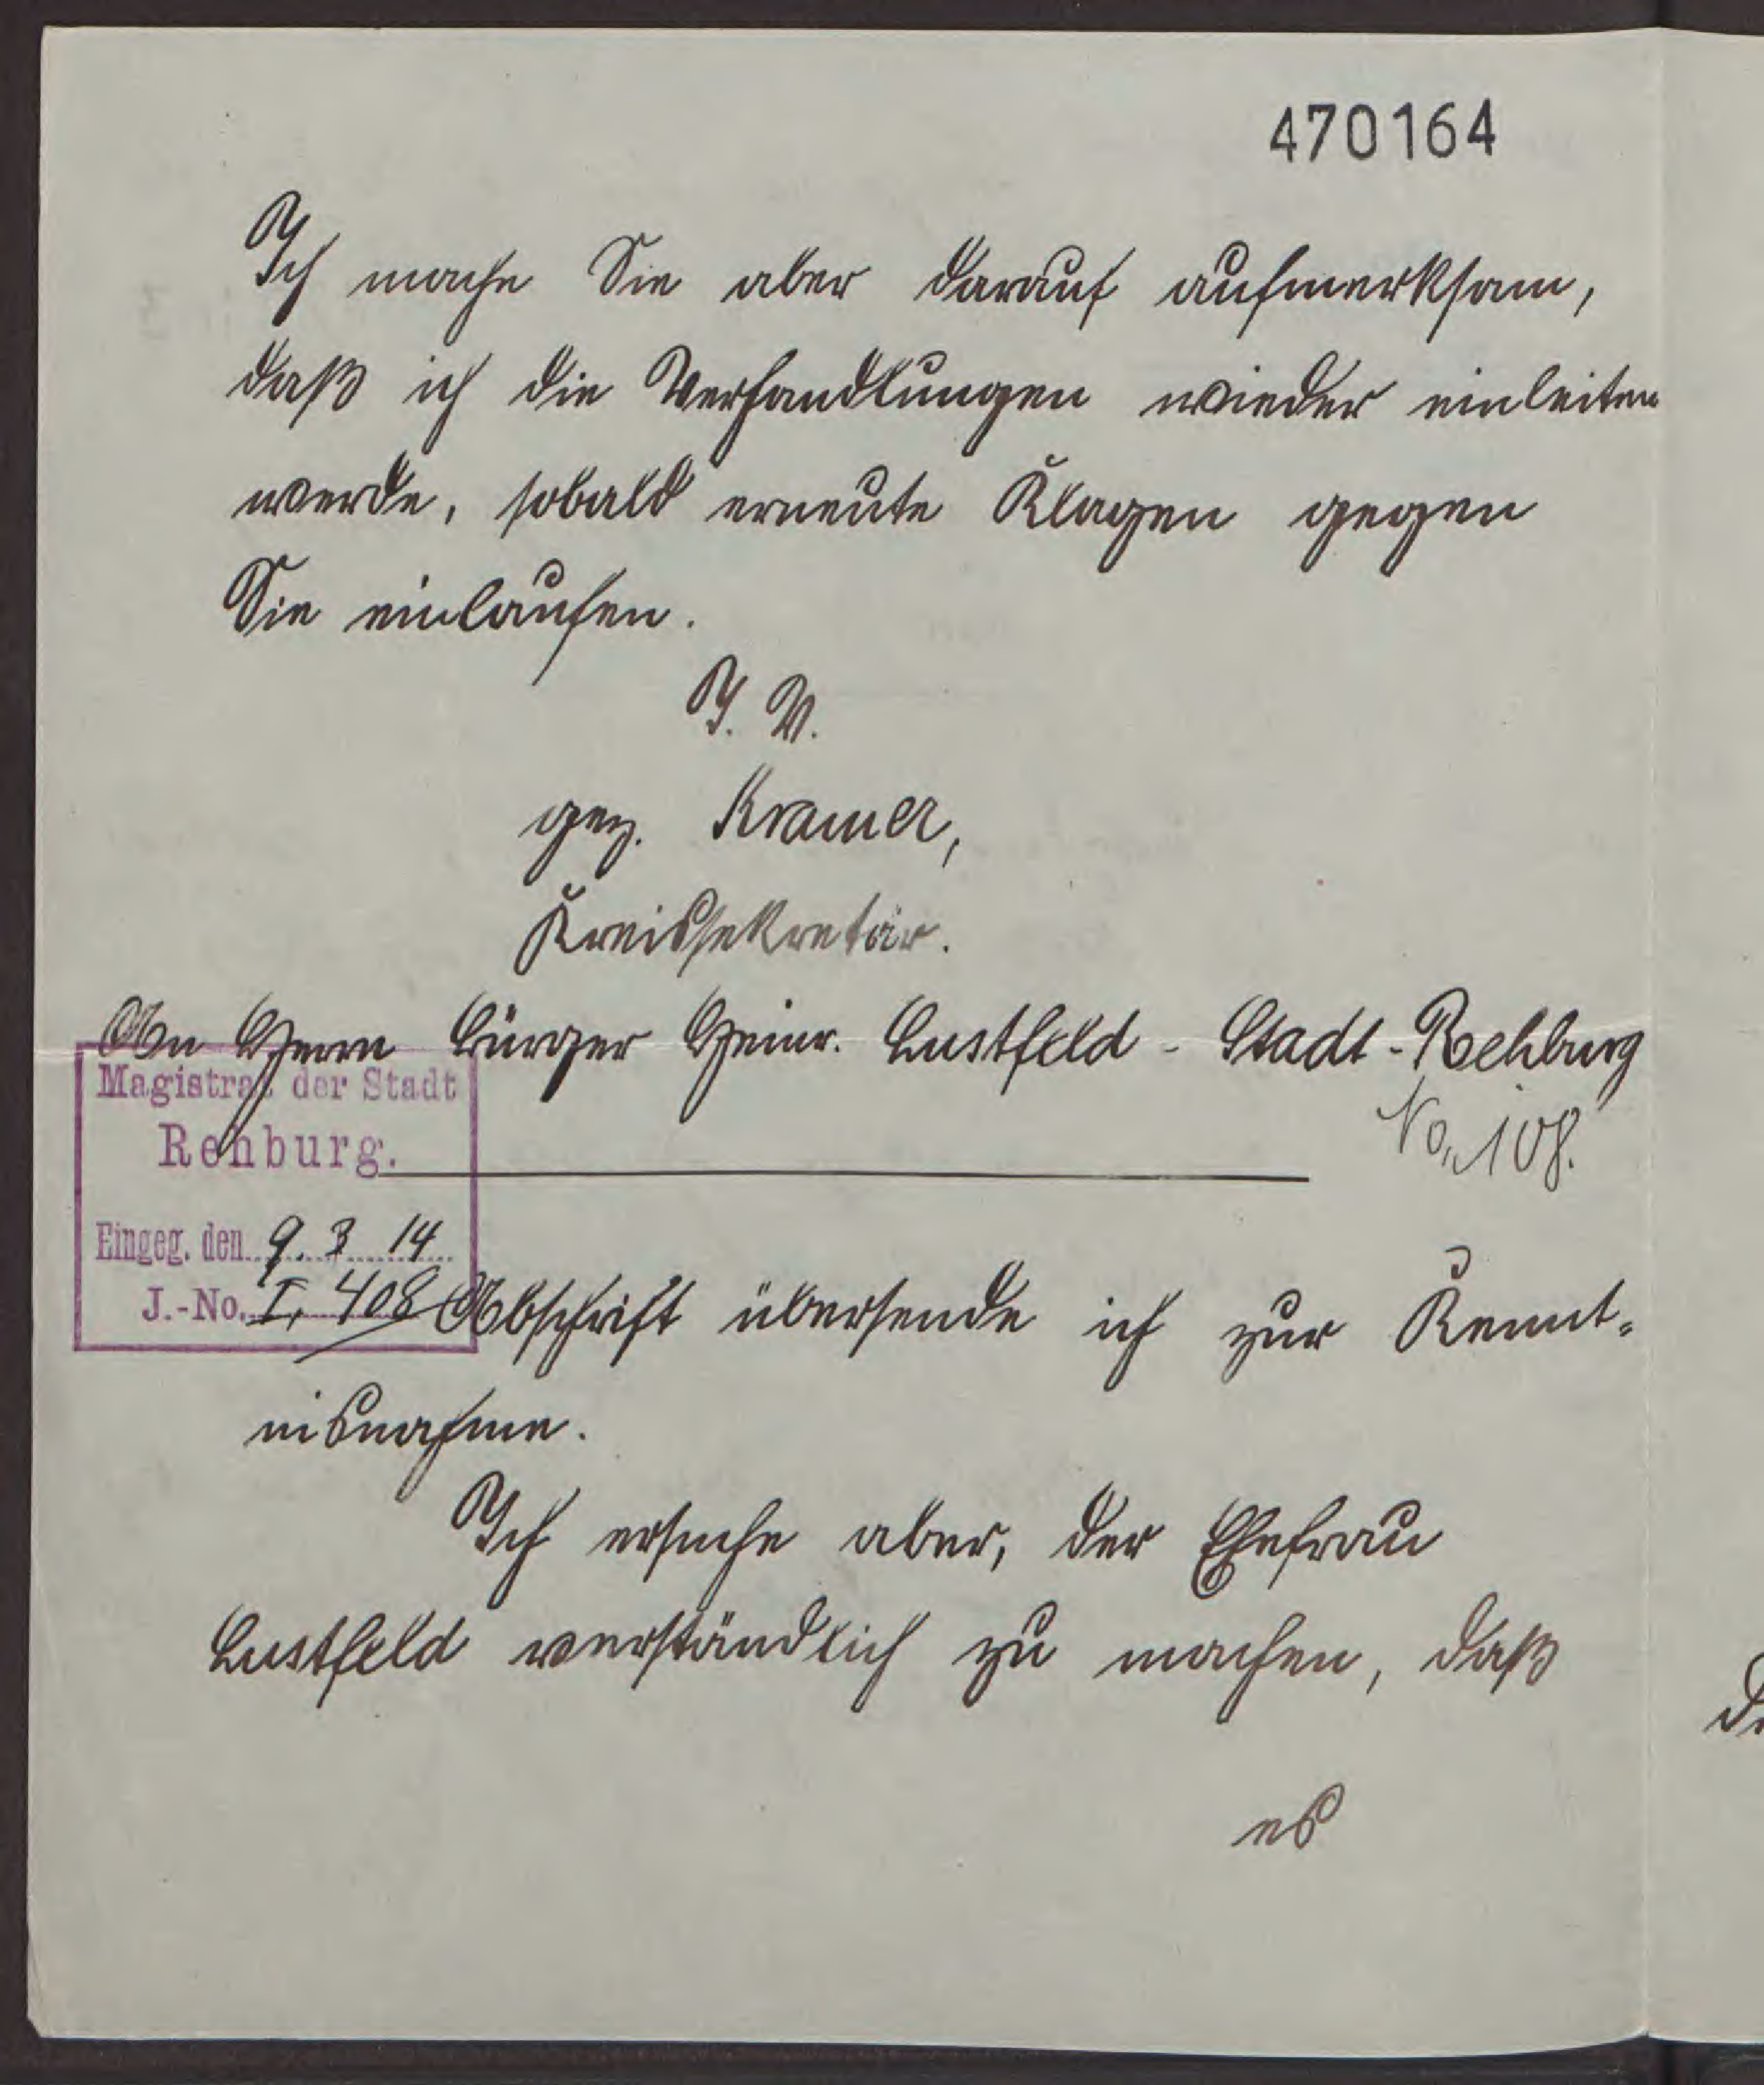 470164
Ich mache Sie aber darauf aufmerksam,
daß ich die Verhandlungen wieder einleiten
werde, sobald erneute Klagen gegen
Sie einlaufen.
I. V.
gez. Kramer,
Kreissekretär.
An Herrn Bürger Heinr. Lustfeld - Stadt-Rehburg
No. 108.
Magistrat der Stadt
Rehburg.
Eingeg. den 9. 3 14
J.-No. I, 408
Abschrift übersende ich zur Kennt-
nisnahme.
Ich ersuche aber, der Ehefrau
Lustfeld verständlich zu machen, daß
es